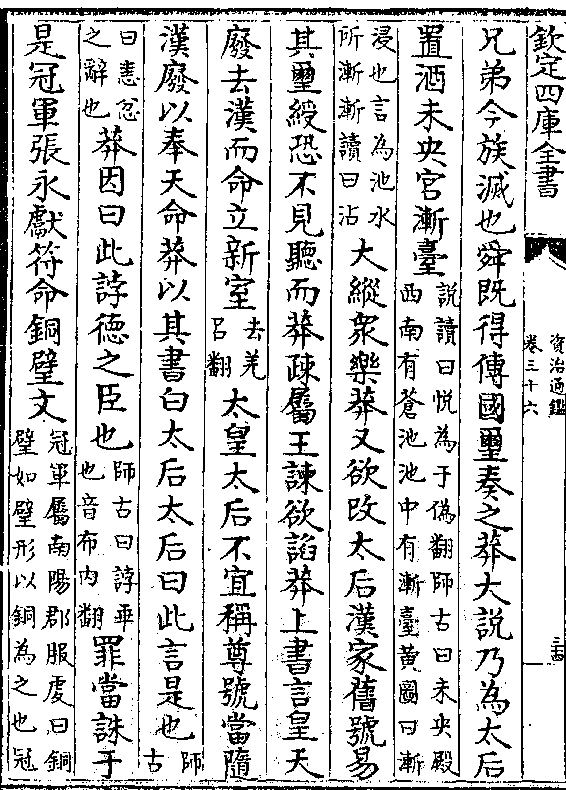 欽定四庫全書
資治通鑑
卷三十六
兄弟今族滅也舜既得傳國璽奏之莽大説乃為太后
置酒未央宮漸臺
説讀曰悦為于偽翻師古曰未央殿
西南有蒼池池中有漸臺黄圖曰漸
浸也言為池水
所漸漸讀曰沾
大縱衆樂莽又欲改太后漢家舊號易
其璽綬恐不見聽而莽疎屬王諫欲諂莽上書言皇天
廢去漢而命立新室
去羌
吕翻
太皇太后不宜稱尊號當隨
漢廢以奉天命莽以其書白太后太后曰此言是也
師
古
曰恚忿
之辭也
莽因曰此誖德之臣也
師古曰誖乖
也音布内翻
罪當誅于
是冠軍張永獻符命銅璧文
冠軍屬南陽郡服虔曰銅
璧如璧形以銅為之也冠